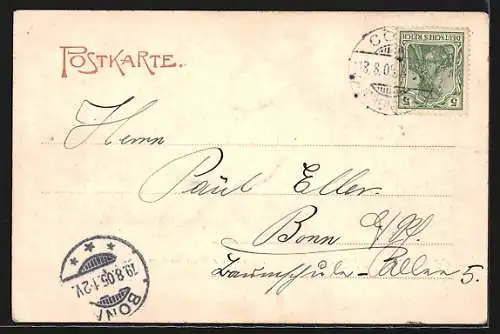 POSTKARTE.
DEUTSCHES REICH
5 5
CO
18.8.05
Herrn
Paul Eller
Bonn a/Rh.
Baumschuler-Allee 5.
BONN
19.8.05.1-2V.